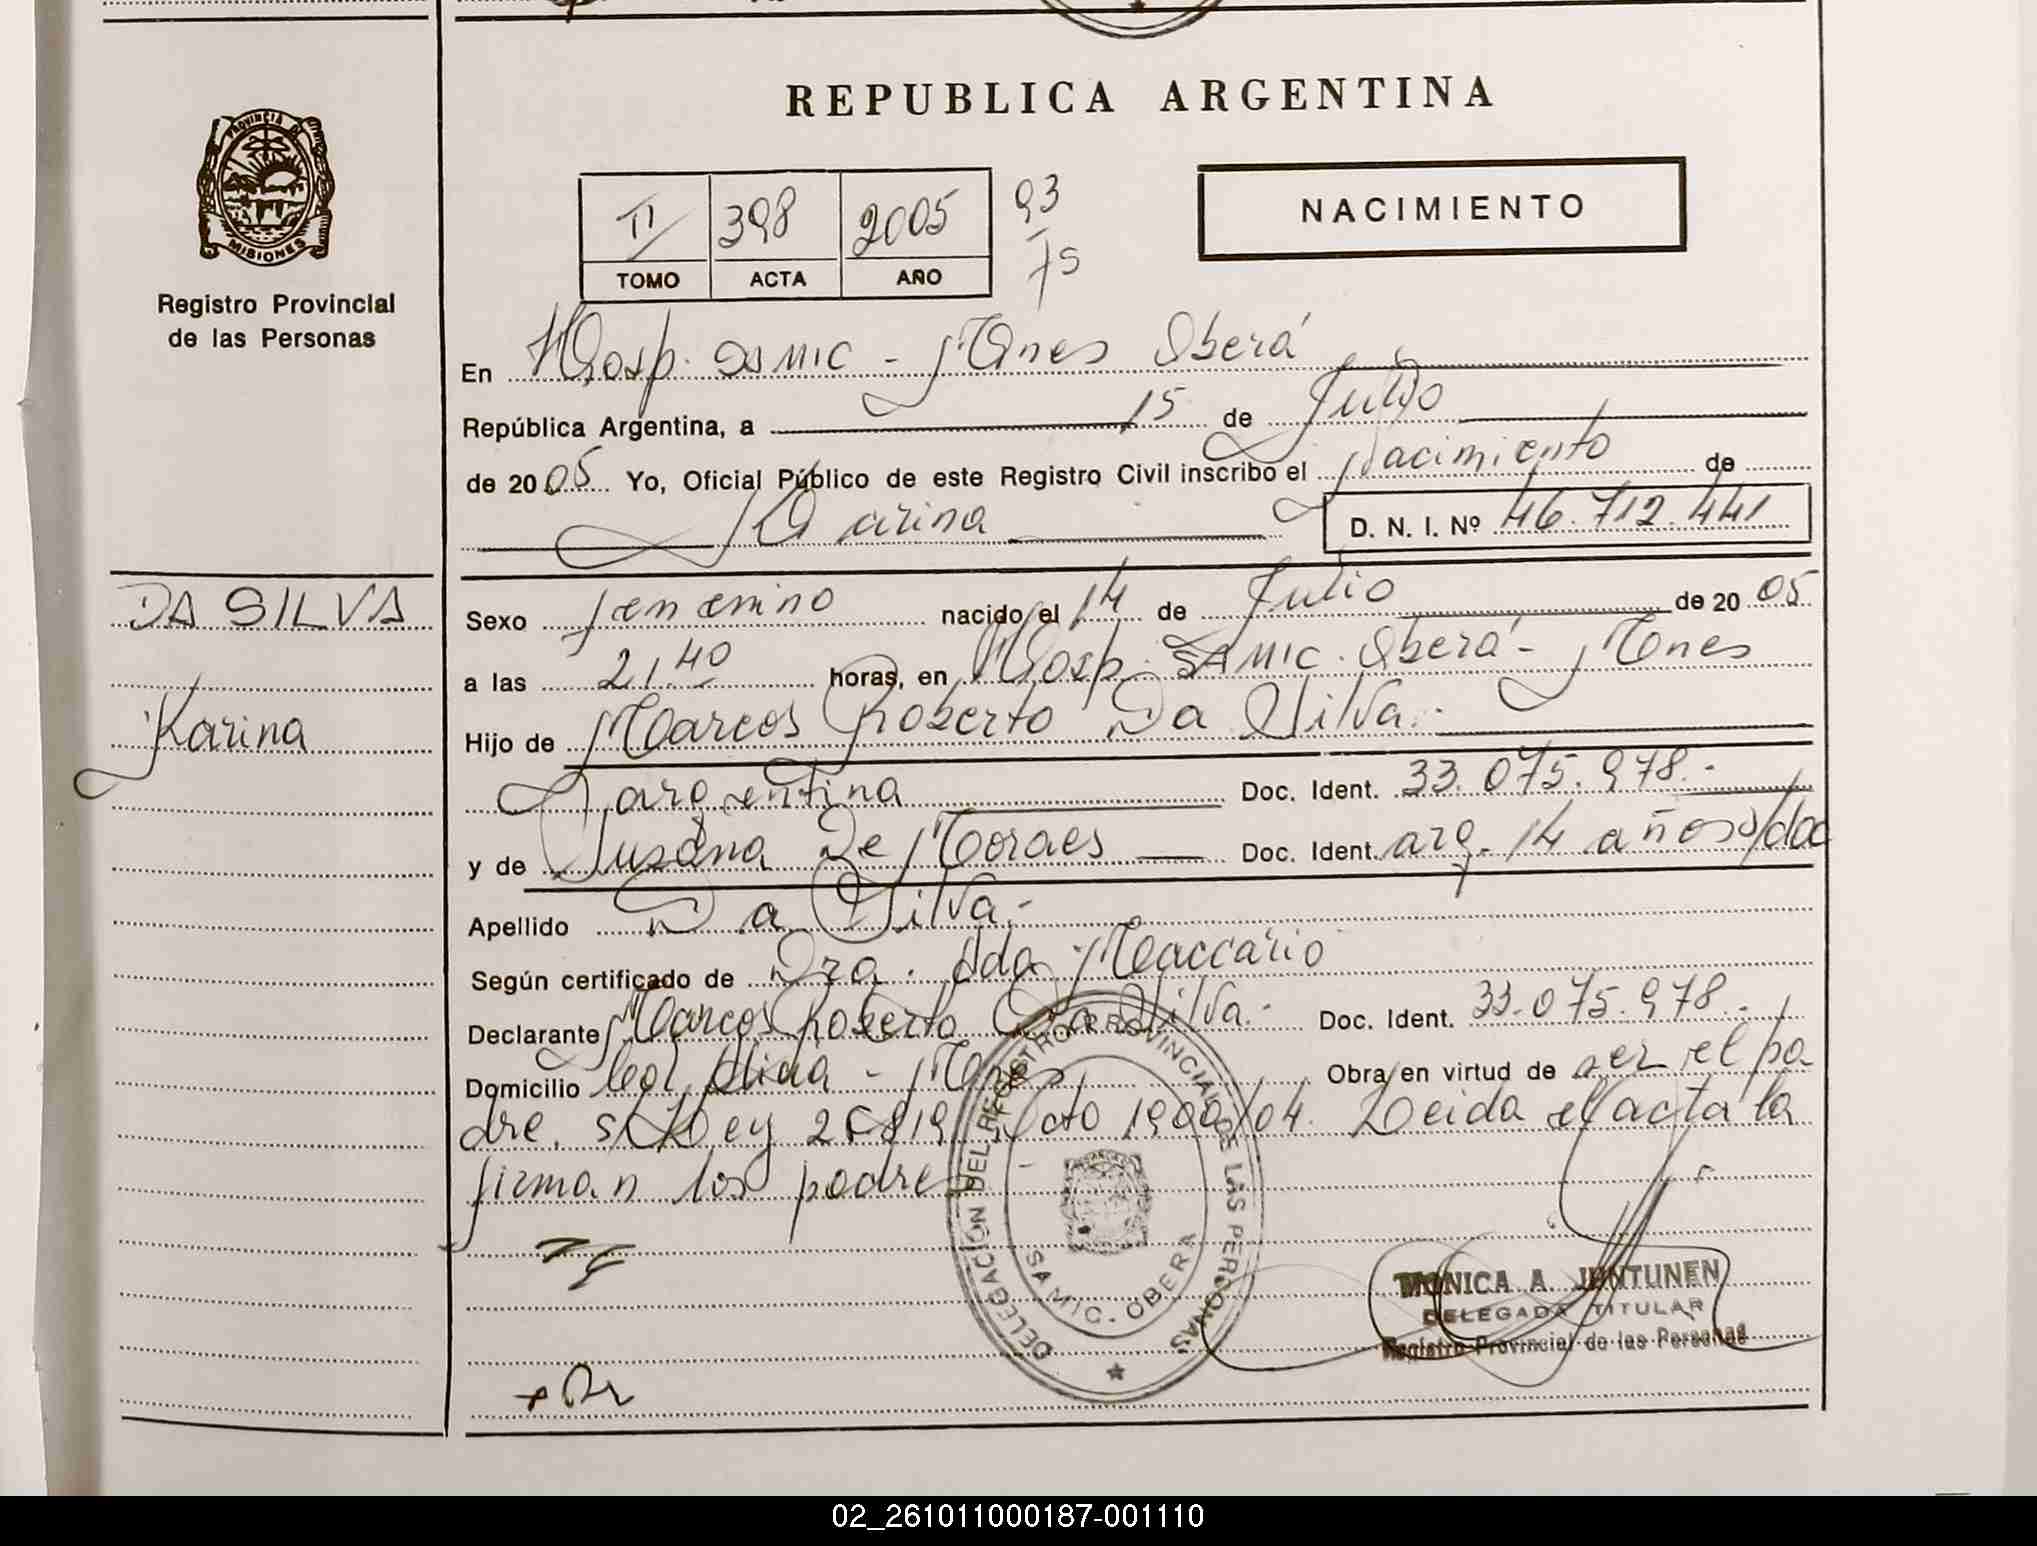 REPUBLICA ARGENTINA
PROVINCIA DE
MISIONES
Registro Provincial
de las Personas
II 398 2005
TOMO ACTA AÑO
93
75
NACIMIENTO
En Hosp. SAMIC - Mnes Oberá
República Argentina, a 15 de Julio
de 2005 Yo, Oficial Público de este Registro Civil inscribo el Nacimiento de
Karina D. N. I. Nº 46.712.441
DA SILVA
Karina
Sexo femenino nacido el 14 de Julio de 2005
a las 21.40 horas, en Hosp. SAMIC. Oberá - Mnes
Hijo de Marcos Roberto Da Silva.-
argentina Doc. Ident. 33.075.978.-
y de Susana De Moraes Doc. Ident. arg. 14 años s/doc
Apellido Da Silva.-
Según certificado de Dra. Ada Maccario
Declarante Marcos Roberto Da Silva.- Doc. Ident. 33.075.978.-
Domicilio Col. Alicia - Mnes Obra en virtud de ser el pa
dre. s/Ley 25819 Dcto 1900/04. Leida el acta la
firman los padre
DELEGACIÓN DEL REGISTRO PROVINCIAL DE LAS PERSONAS
SAMIC. OBERA
MONICA A. JUNTUNEN
DELEGADA TITULAR
Registro Provincial de las Personas
02_261011000187-001110